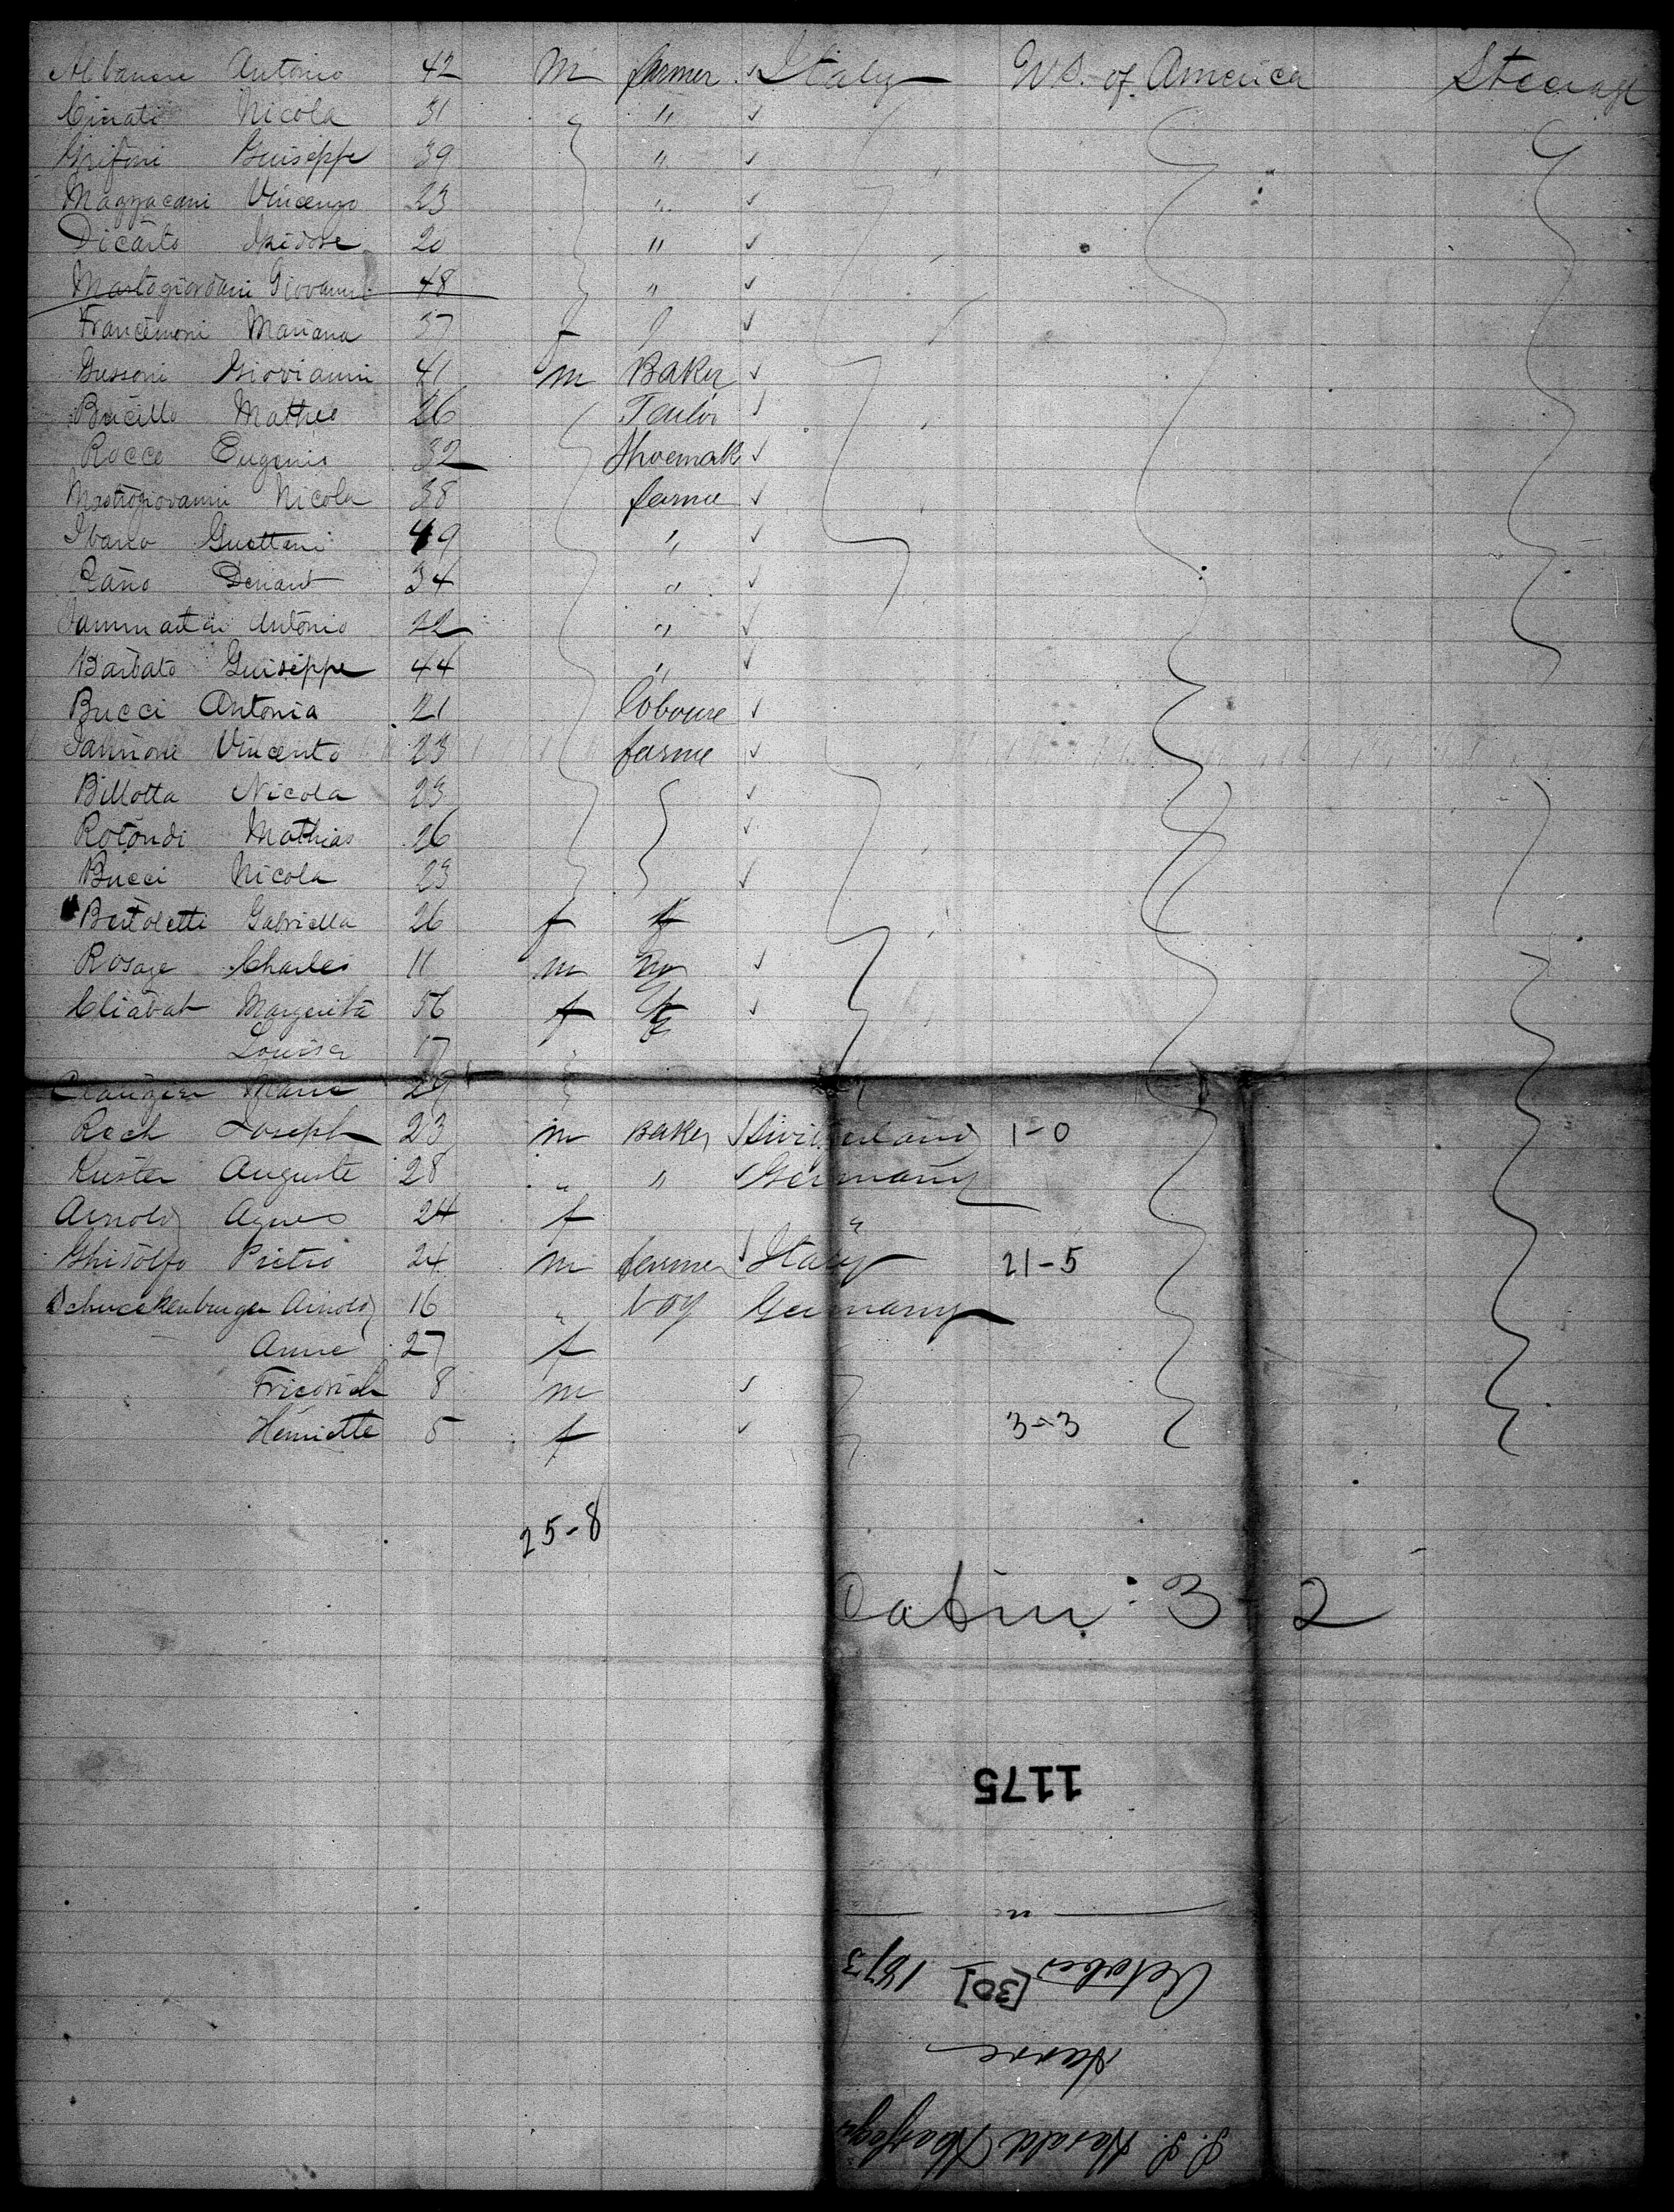 Albanese Antonio 42 m farmer ✓ Italy US. of America Steerage
Cinati Nicola 31 " " ✓
Grifoni Guiseppe 39 " ✓
Mazzacani Vincenzo 23 " ✓
Dicarto Isidore 20 " ✓
Mastogiordani Giovanni 48 " ✓
Francimoni Mariana 37 f ✓
Gussoni Giovianni 41 m Baker ✓
Bucillo Matheo 26 Tailor ✓
Rocco Eugenio 32 Shoemak ✓
Mastrogiovanni Nicola 38 farme ✓
49 " ✓
34 " ✓
Antonio 22 " ✓
Barbato Guiseppe 44 " ✓
Bucci Antonia 21 laboure ✓
Iannone Vincento 23 farme ✓
Billotta Nicola 23 ✓
Rotondi Mathias 26 ✓
Bucci Nicola 23 ✓
Bertoletti Gabriella 26 f
Rosaze Charles 11 m ✓
Cliabat Margerita 56 f ✓
Louisa 17
Marie 29
Roch Joseph 23 m Baker ✓ Switzerland 1-0
Kuster Auguste 28 " " ✓ Germany
Arnold Agnes 24 f "
Ghisolfo Pietro 24 m farmer ✓ Italy 21-5
Schneckenburger Arnold 16 " boy Germany
Anne 27 f
Friedrich 8 m ✓
Henriette 5 f ✓ 3-3
25-8
Cabin: 3 2
1175
"
October [30] 1873
Havre
S. S. Harald Haarfager